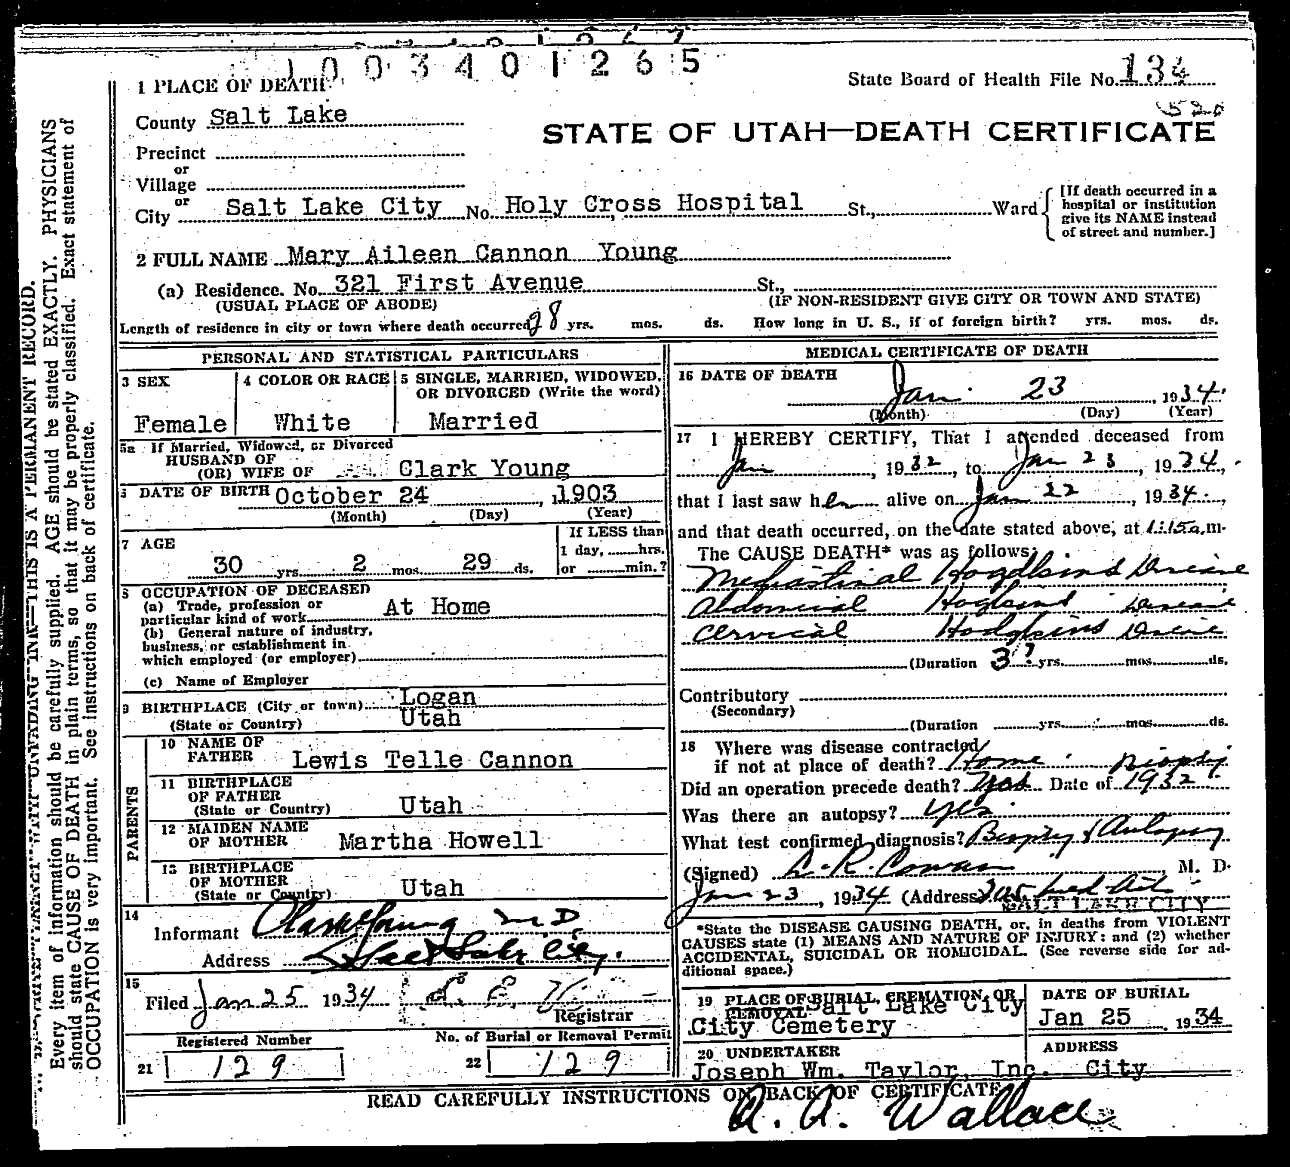 1003401265
1 PLACE OF DEATH
State Board of Health File No. 134
County Salt Lake
STATE OF UTAH—DEATH CERTIFICATE
Precinct
or
Village
or
City Salt Lake City No. Holy Cross Hospital St., Ward
[If death occurred in a
hospital or institution
give its NAME instead
of street and number.]
2 FULL NAME Mary Aileen Cannon Young
(a) Residence. No. 321 First Avenue St.,
(USUAL PLACE OF ABODE) (IF NON-RESIDENT GIVE CITY OR TOWN AND STATE)
Length of residence in city or town where death occurred 28 yrs. mos. ds. How long in U. S., if of foreign birth? yrs. mos. ds.
PERSONAL AND STATISTICAL PARTICULARS
3 SEX
Female
4 COLOR OR RACE
White
5 SINGLE, MARRIED, WIDOWED,
OR DIVORCED (Write the word)
Married
5a If Married, Widowed, or Divorced
HUSBAND OF
(OR) WIFE OF Clark Young
6 DATE OF BIRTH October 24, 1903
(Month) (Day) (Year)
7 AGE
30 yrs. 2 mos. 29 ds.
If LESS than
1 day, hrs.
or min.?
8 OCCUPATION OF DECEASED
(a) Trade, profession or
particular kind of work At Home
(b) General nature of industry,
business, or establishment in
which employed (or employer)
(c) Name of Employer
9 BIRTHPLACE (City or town) Logan
(State or Country) Utah
PARENTS
10 NAME OF
FATHER Lewis Telle Cannon
11 BIRTHPLACE
OF FATHER
(State or Country) Utah
12 MAIDEN NAME
OF MOTHER Martha Howell
13 BIRTHPLACE
OF MOTHER
(State or Country) Utah
14
Informant Clark Young M D
Address Salt Lake City.
15
Filed Jan 25 1934
Registrar
Registered Number
21 129
No. of Burial or Removal Permit
22 129
MEDICAL CERTIFICATE OF DEATH
16 DATE OF DEATH
Jan. 23, 1934.
(Month) (Day) (Year)
17 I HEREBY CERTIFY, That I attended deceased from
Jan, 1932, to Jan 23, 1934,
that I last saw her alive on Jan 22, 1934,
and that death occurred, on the date stated above, at 1:15 a.m.
The CAUSE DEATH* was as follows:
Mediastinal Hogdkins Disease
Abdominal Hogkins Disease
Cervical Hodgkins Disease
(Duration 3? yrs. mos. ds.
Contributory
(Secondary)
(Duration yrs. mos. ds.
18 Where was disease contracted
if not at place of death? Home Biopsy
Did an operation precede death? Yes Date of 1932
Was there an autopsy? Yes.
What test confirmed diagnosis? Biopsy & Autopsy
(Signed) M. D.
Jan 23, 1934 (Address)
SALT LAKE CITY
*State the DISEASE CAUSING DEATH, or, in deaths from VIOLENT
CAUSES state (1) MEANS AND NATURE OF INJURY: and (2) whether
ACCIDENTAL, SUICIDAL OR HOMICIDAL. (See reverse side for ad-
ditional space.)
19 PLACE OF BURIAL, CREMATION, OR
REMOVAL Salt Lake City
City Cemetery
DATE OF BURIAL
Jan 25 1934
20 UNDERTAKER
Joseph Wm. Taylor, Inc.
ADDRESS
City
READ CAREFULLY INSTRUCTIONS ON BACK OF CERTIFICATE
A. A. Wallace
THIS IS A PERMANENT RECORD.
Every item of information should be carefully supplied. AGE should be stated EXACTLY. PHYSICIANS
should state CAUSE OF DEATH in plain terms, so that it may be properly classified. Exact statement of
OCCUPATION is very important. See instructions on back of certificate.